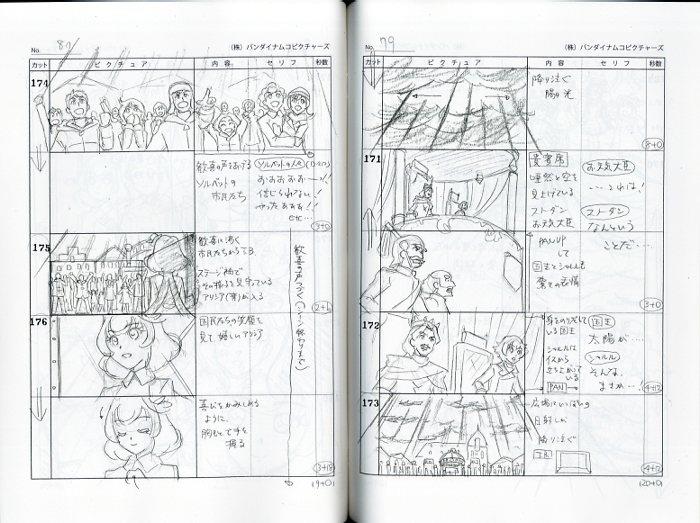 No. 80
(株) バンダイナムコピクチャーズ
カット ピクチュア 内容 セリフ 秒数
174
歓喜の声をあげる
ソルベットの
市民たち
ソルベットの人々
おおおおおーっ!!
信じられない!
やったぁぁぁ!!
etc…
(3+0)
175
歓喜に湧く
市民たちから
ステージ袖で
その様子を見守っている
アリシア(幸)が入る
歓喜の声つづく(シーン終わりまで)
176
国民たちの笑顔を
見て嬉しいアリシア
喜びをかみしめる
ように
胸もとで手を
握る
(9+0)
No. 79
(株) バンダイナムコピクチャーズ
カット ピクチュア 内容 セリフ 秒数
降り注ぐ
陽の光
(8+0)
171
貴賓席
唖然と空を
見上げている
ストダン
お天気大臣
お天気大臣
……これは!
ストダン
なんという
ことだ…
PAN UP
して
国王とシャルルも
驚きの表情
(3+0)
172
身をのりだして
いる国王
シャルルは
イスから
立ち上がって
いる
PAN
国王
太陽が…
シャルル
そんな、
まさか…
(4+12)
173
広場にいっぱいの
日射しが
降り注ぐ
T.B
(4+12)
(20+0)